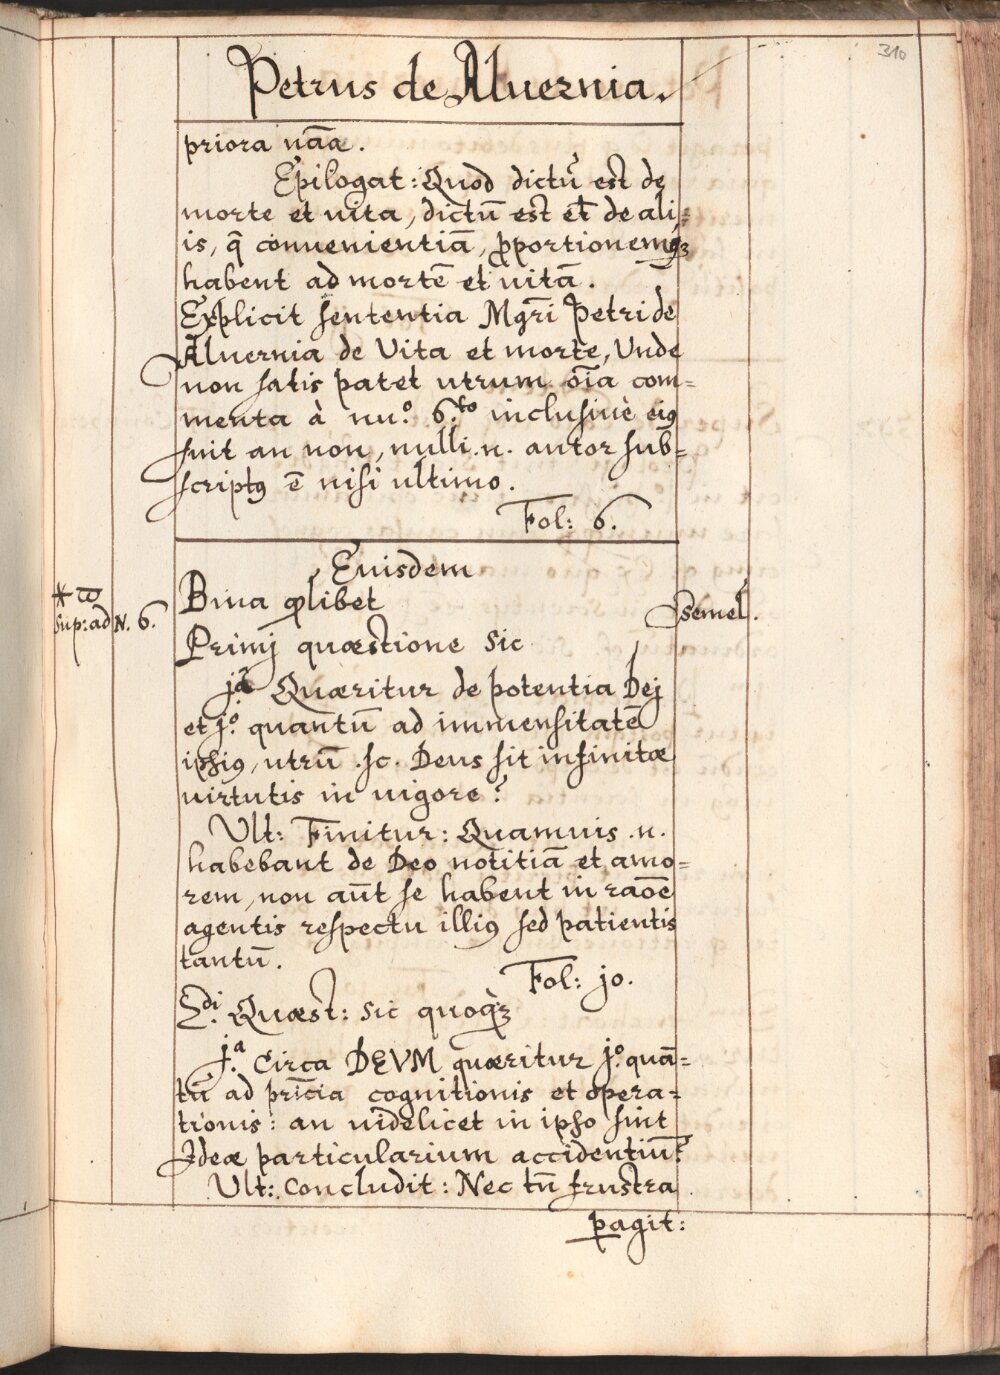 310
Petrus de Aluernia.
priora nāa.
Epilogat: Quod dictū est de
morte et uita, dictū est et̄ de ali=
is, q̄ conuenientiā, ꝓportionemq́ꝫ
habent ad mortē et uitā.
Explicit sententia Mgr̄i Petri de
Aluernia de Vita et morte, Vnde
non satis patet utrum ōīa com=
menta à nu.º 6.to inclusiuè eiꝰ
sint an non, nulli .n. autor sub=
scriptꝰ ē nisi ultimo.
Fol: 6.
Euisdem
* ω
sup: ad N. 6.
Bina qlibet
semel.
Primj quæstione sic
jª Quæritur de potentia Dej
et jº. quantū ad immensitatē
ipsiꝰ, utrū .sc. Deus sit infinitæ
uirtutis in uigore?
Ult: Finitur: Quamuis .n.
habebant de Deo notitiā et amo=
rem, non aūt se habent in raōē
agentis respectu illiꝰ sed patientis
tantū.
Fol: jo.
2di. Quæst: sic quoq́ꝫ
j.ª Circa DEVM quæritur jº. quā=
tū ad prīcīa cognitionis et opera=
tionis: an uidelicet in ipso sint
Ideæ particularium accidentiū?
Ult: Concludit: Nec tn̄ frustra
ꝑagit: